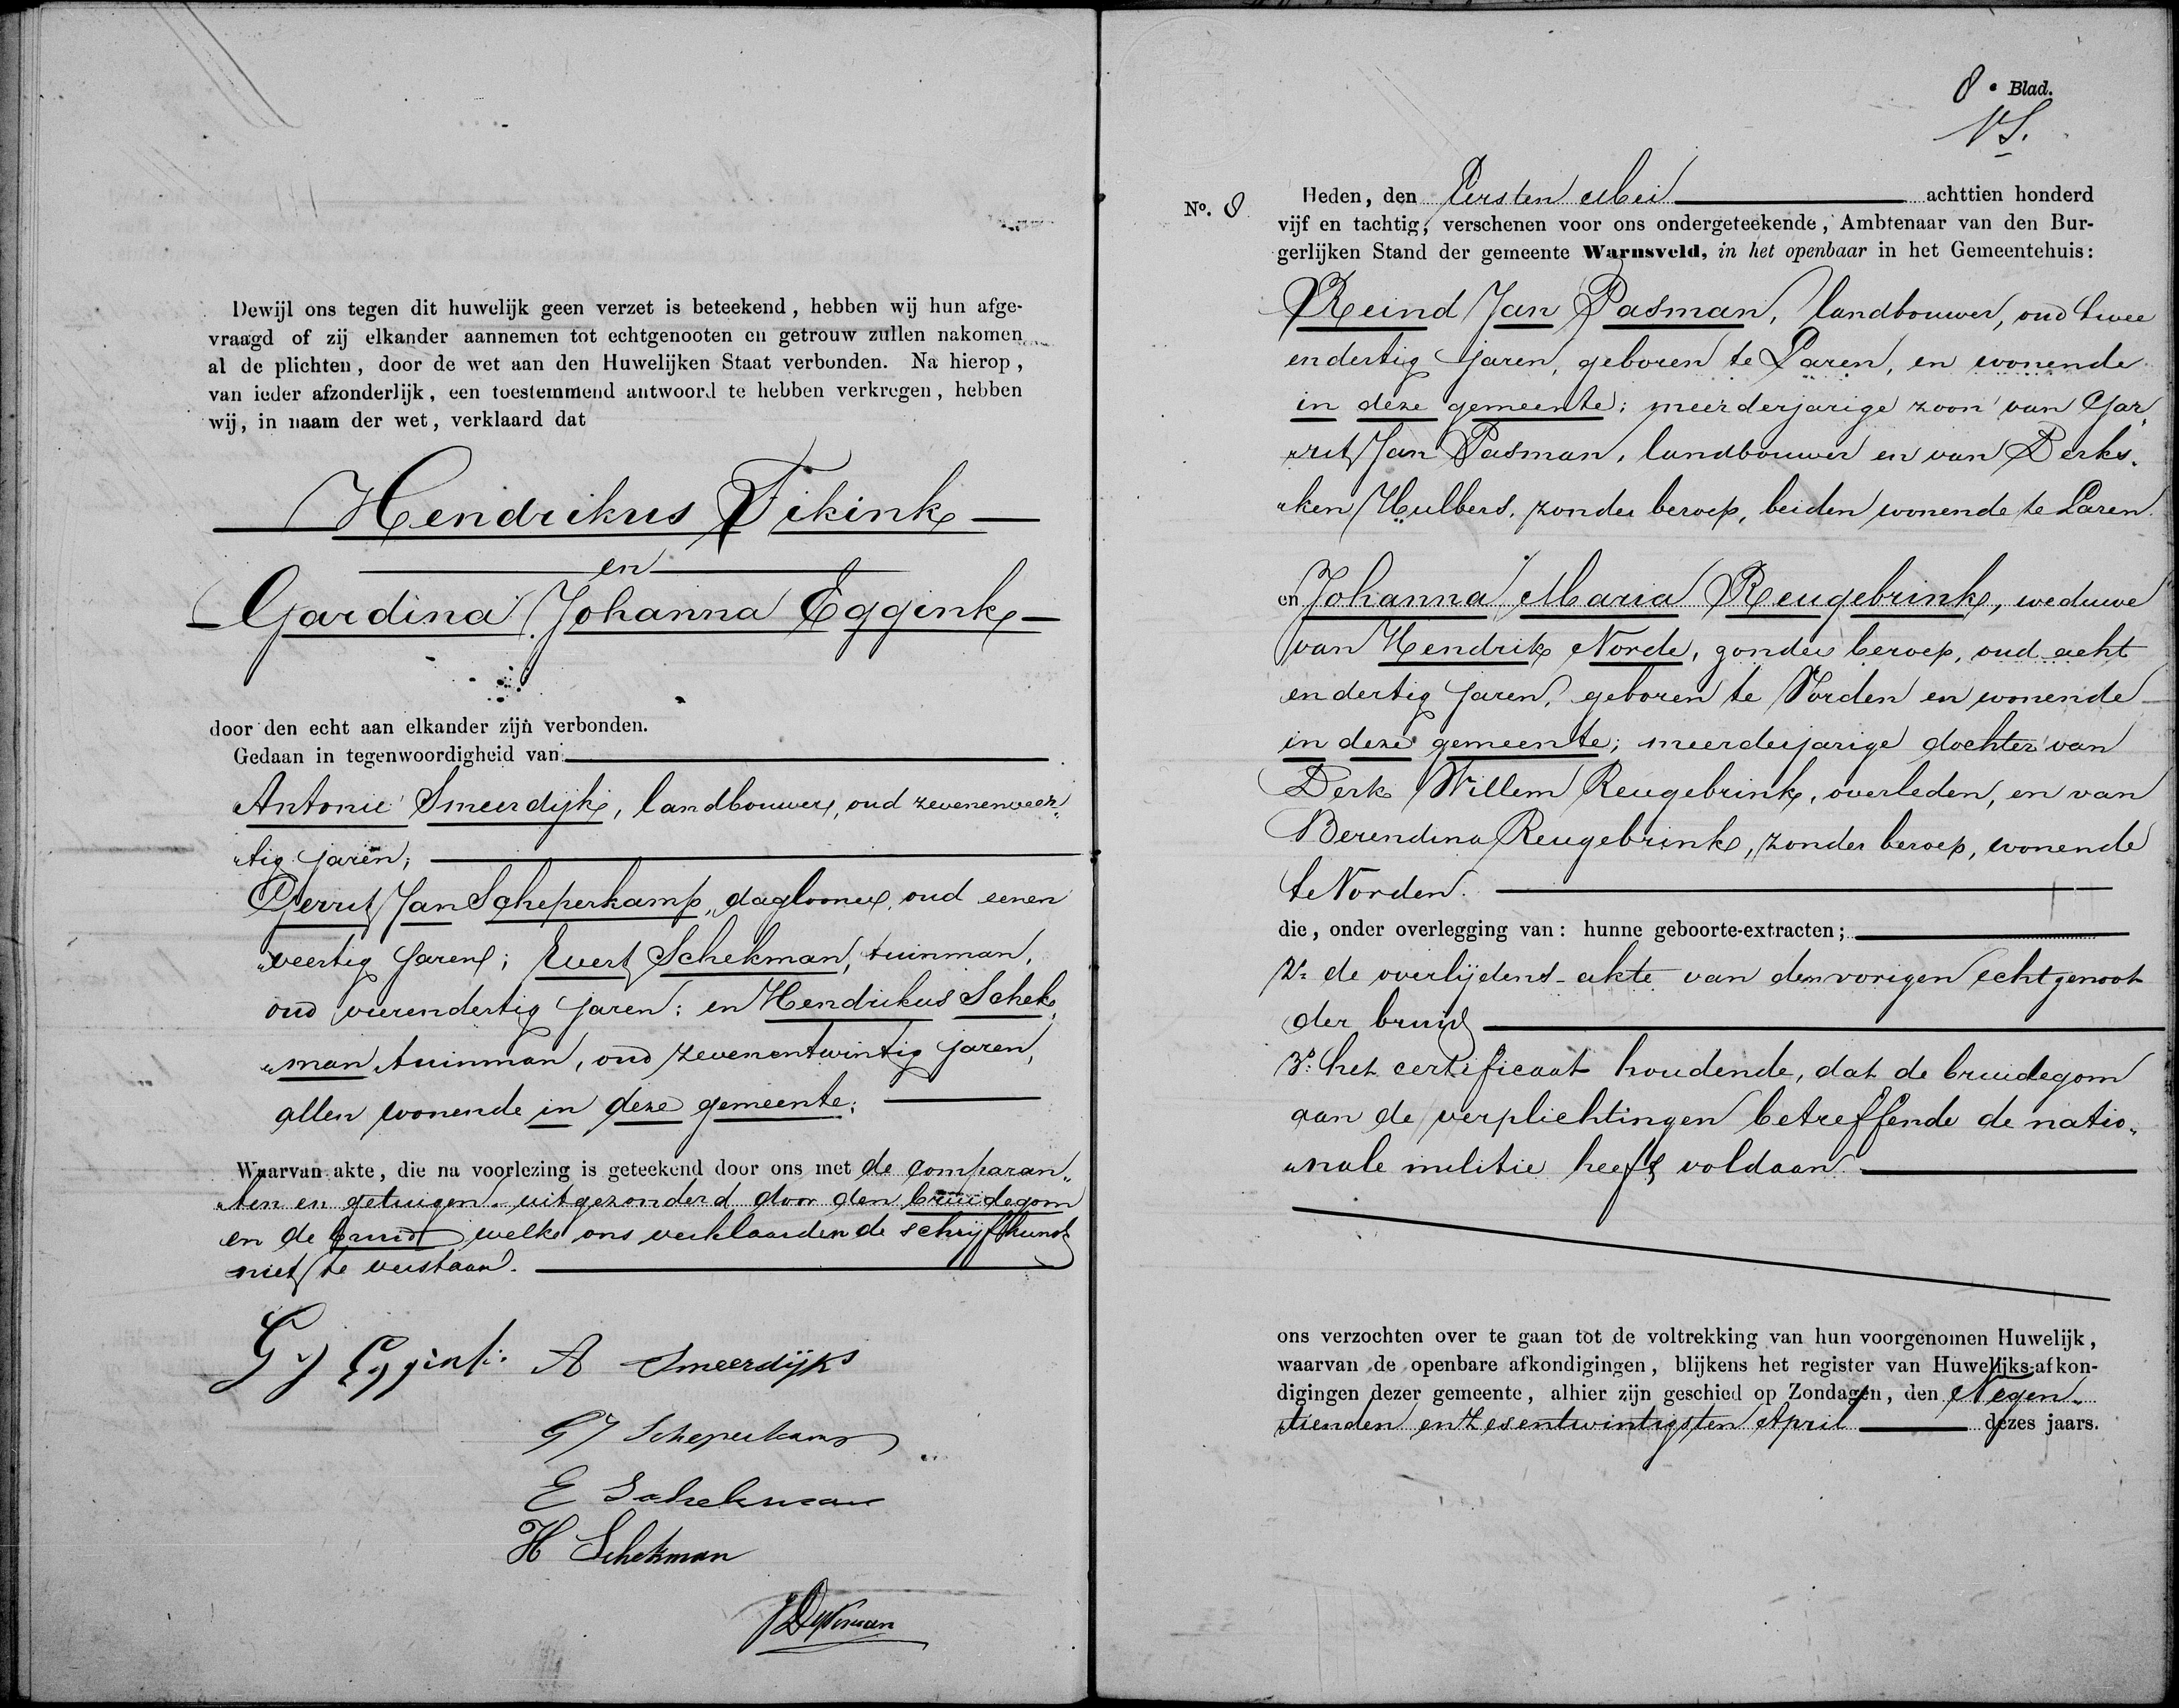 Dewijl ons tegen dit huwelijk geen verzet is beteekend, hebben wij hun afge-
vraagd of zij elkander aannemen tot echtgenooten en getrouw zullen nakomen
al de plichten, door de wet aan den Huwelijken Staat verbonden. Na hierop,
van ieder afzonderlijk, een toestemmend antwoord te hebben verkregen, hebben
wij, in naam der wet, verklaard dat
Hendrikus Fikink
en
Gardina Johanna Eggink
door den echt aan elkander zijn verbonden.
Gedaan in tegenwoordigheid van
Antonie Smeerdijk, landbouwer, oud zevenenveer„
„tig jaren;
Gerrit Jan Scheperkamp, daglooner, oud eenen
„veertig jaren; Evert Schekman, tuinman,
oud vierendertig jaren; en Hendrikus Schek„
„man tuinman, oud zevenentwintig jaren,
allen wonende in deze gemeente;
Waarvan akte, die na voorlezing is geteekend door ons met de comparan„
„ten en getuigen. uitgezonderd door den bruidegom
en de bruid welke ons verklaarden de schrijfkunst
niet te verstaan.
G J Eggink. A Smeerdijk
G J Scheperkamp
E Schekman
H Schekman
8e Blad.
No. 8
Heden, den Eersten Mei achttien honderd
vijf en tachtig, verschenen voor ons ondergeteekende, Ambtenaar van den Bur-
gerlijken Stand der gemeente Warnsveld, in het openbaar in het Gemeentehuis:
Reind Jan Pasman, landbouwer, oud twee
endertig jaren, geboren te Laren, en wonende
in deze gemeente; meerderjarige zoon van Gar„
„rit Jan Pasman, landbouwer en van Derks„
„ken Hulbers, zonder beroep, beiden wonende te Laren.
en Johanna Maria Reugebrink, weduwe
van Hendrik Norde, zonder beroep, oud acht
endertig jaren, geboren te Vorden en wonende
in deze gemeente; meerderjarige dochter van
Derk Willem Reugebrink, overleden, en van
Berendina Reugebrink, zonder beroep, wonende
te Vorden.
die, onder overlegging van: hunne geboorte-extracten;
2e de overlijdens-akte van den vorigen echtgenoot
der bruid
3e het certificaat houdende, dat de bruidegom
aan de verplichtingen betreffende de natio„
„nale militie heeft voldaan.
ons verzochten over te gaan tot de voltrekking van hun voorgenomen Huwelijk,
waarvan de openbare afkondigingen, blijkens het register van Huwelijks-afkon-
digingen dezer gemeente, alhier zijn geschied op Zondagen, den Negen„
„tienden en Zesentwintigsten April dezes jaars.